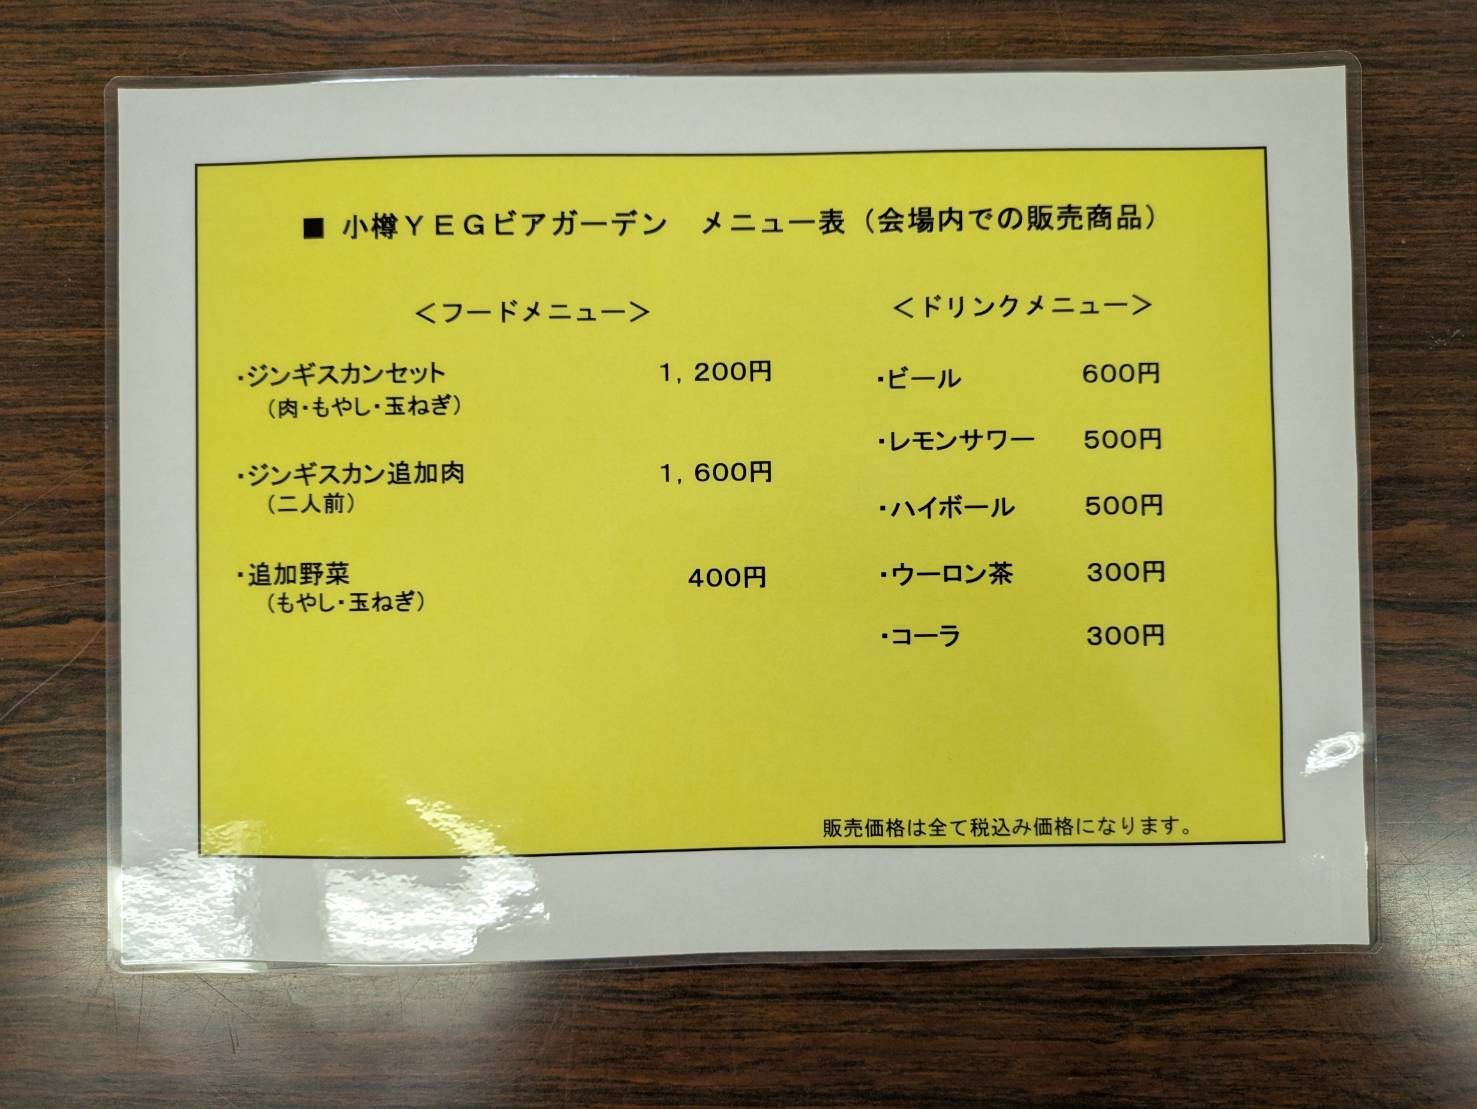 ■ 小樽ＹＥＧビアガーデン　メニュー表（会場内での販売商品）
＜フードメニュー＞
・ジンギスカンセット　1，200円
（肉・もやし・玉ねぎ）
・ジンギスカン追加肉　1，600円
（二人前）
・追加野菜　400円
（もやし・玉ねぎ）
＜ドリンクメニュー＞
・ビール　600円
・レモンサワー　500円
・ハイボール　500円
・ウーロン茶　300円
・コーラ　300円
販売価格は全て税込み価格になります。